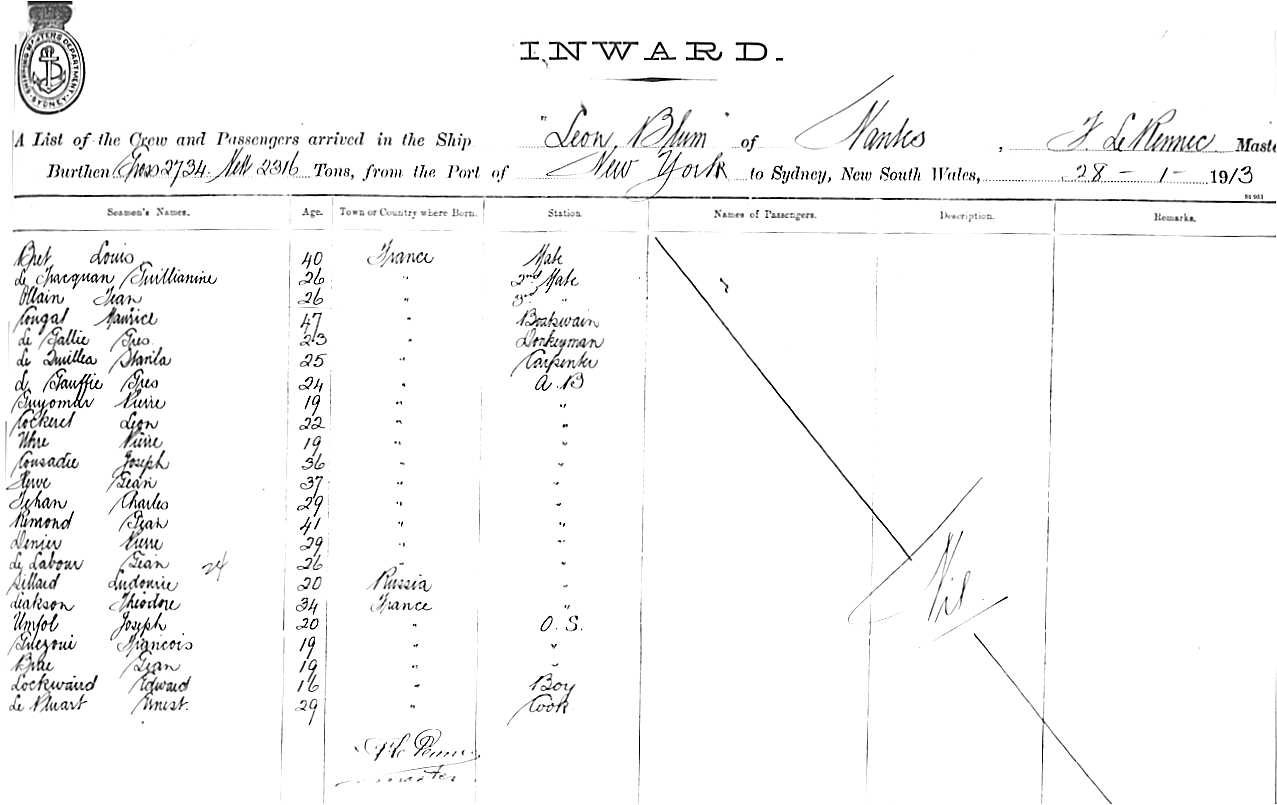 SHIPPING MASTERS DEPARTMENT SYDNEY
INWARD.
A List of the Crew and Passengers arrived in the Ship "Leon Blum" of Nantes, F. Le Rennec Maste
Burthen Gross 2734 Nett 2316 Tons, from the Port of New York to Sydney, New South Wales, 28 - 1 - 1913
Seamen's Names. Age. Town or Country where Born. Station. Names of Passengers. Description. Remarks.
Bret Louis 40 France Mate
Le Jacquan Guillianine 26 " 2nd Mate
Ollain Jean 26 " 3rd "
Cougat Maurice 47 " Boatswain
Le Gallie Fres 23 " Donkeyman
Le Quillea Stanila 25 " Carpenter
Le Gauffie Fres 24 " A.B
Guyomar Pierre 19 " "
Cockeret Leon 22 " "
Uhre Pierre 19 " "
Cousadie Joseph 36 " "
Herve Jean 37 " "
Jehan Charles 29 " "
Remond Jean 41 " "
Denier Pierre 29 " "
Le Labour Jean 26 " "
24
Sillard Ludovic 20 Russia "
Liakson Théodore 34 France "
Umfol Joseph 20 " O.S.
Guezoui Francois 19 " "
Brae Jean 19 " "
Lockwaird Edward 16 " Boy
Le Bluart Ernest. 29 " Cook
Nil
F Le Renne
master